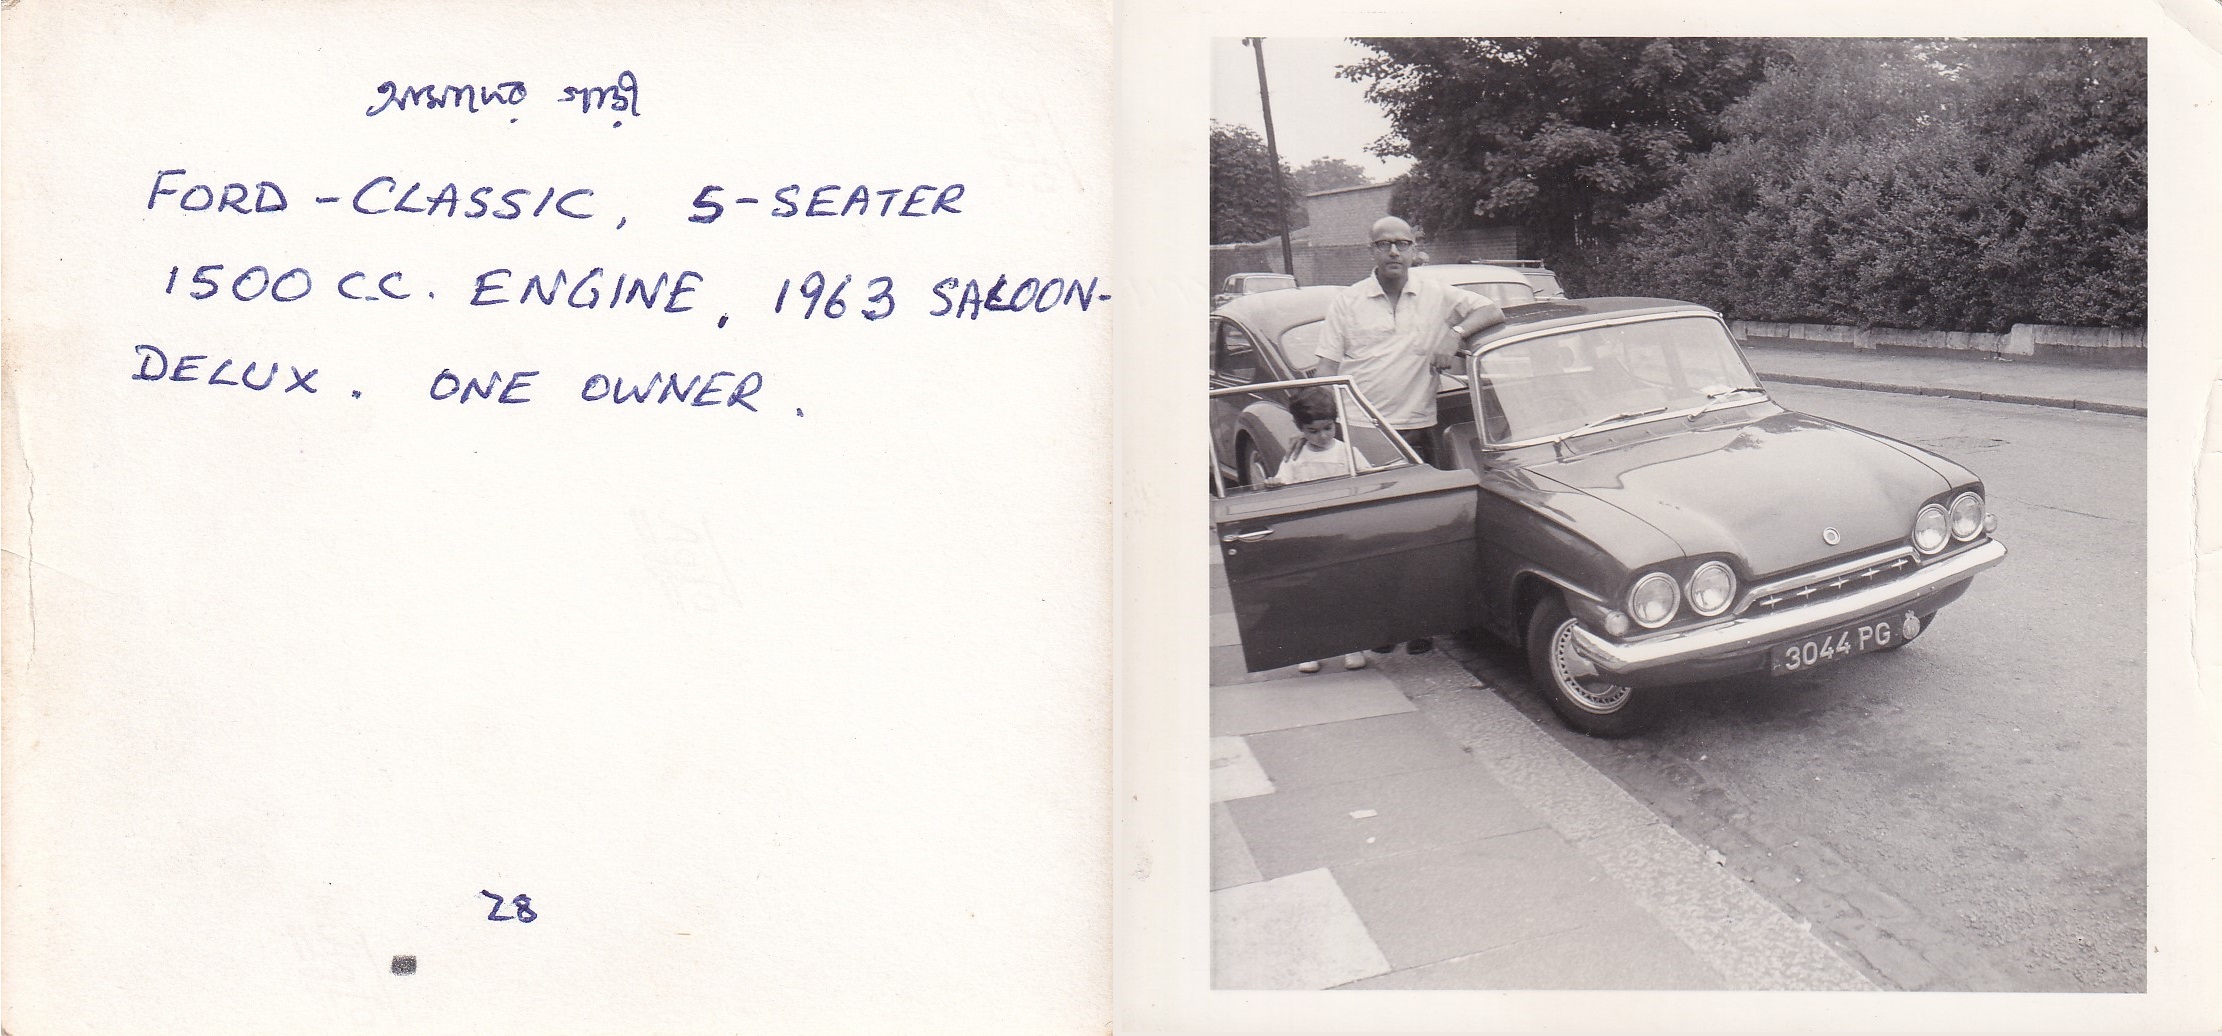 আমাদের গাড়ী
FORD - CLASSIC, 5-SEATER
1500 C.C. ENGINE, 1963 SALOON-
DELUX. ONE OWNER.
28
3044 PG